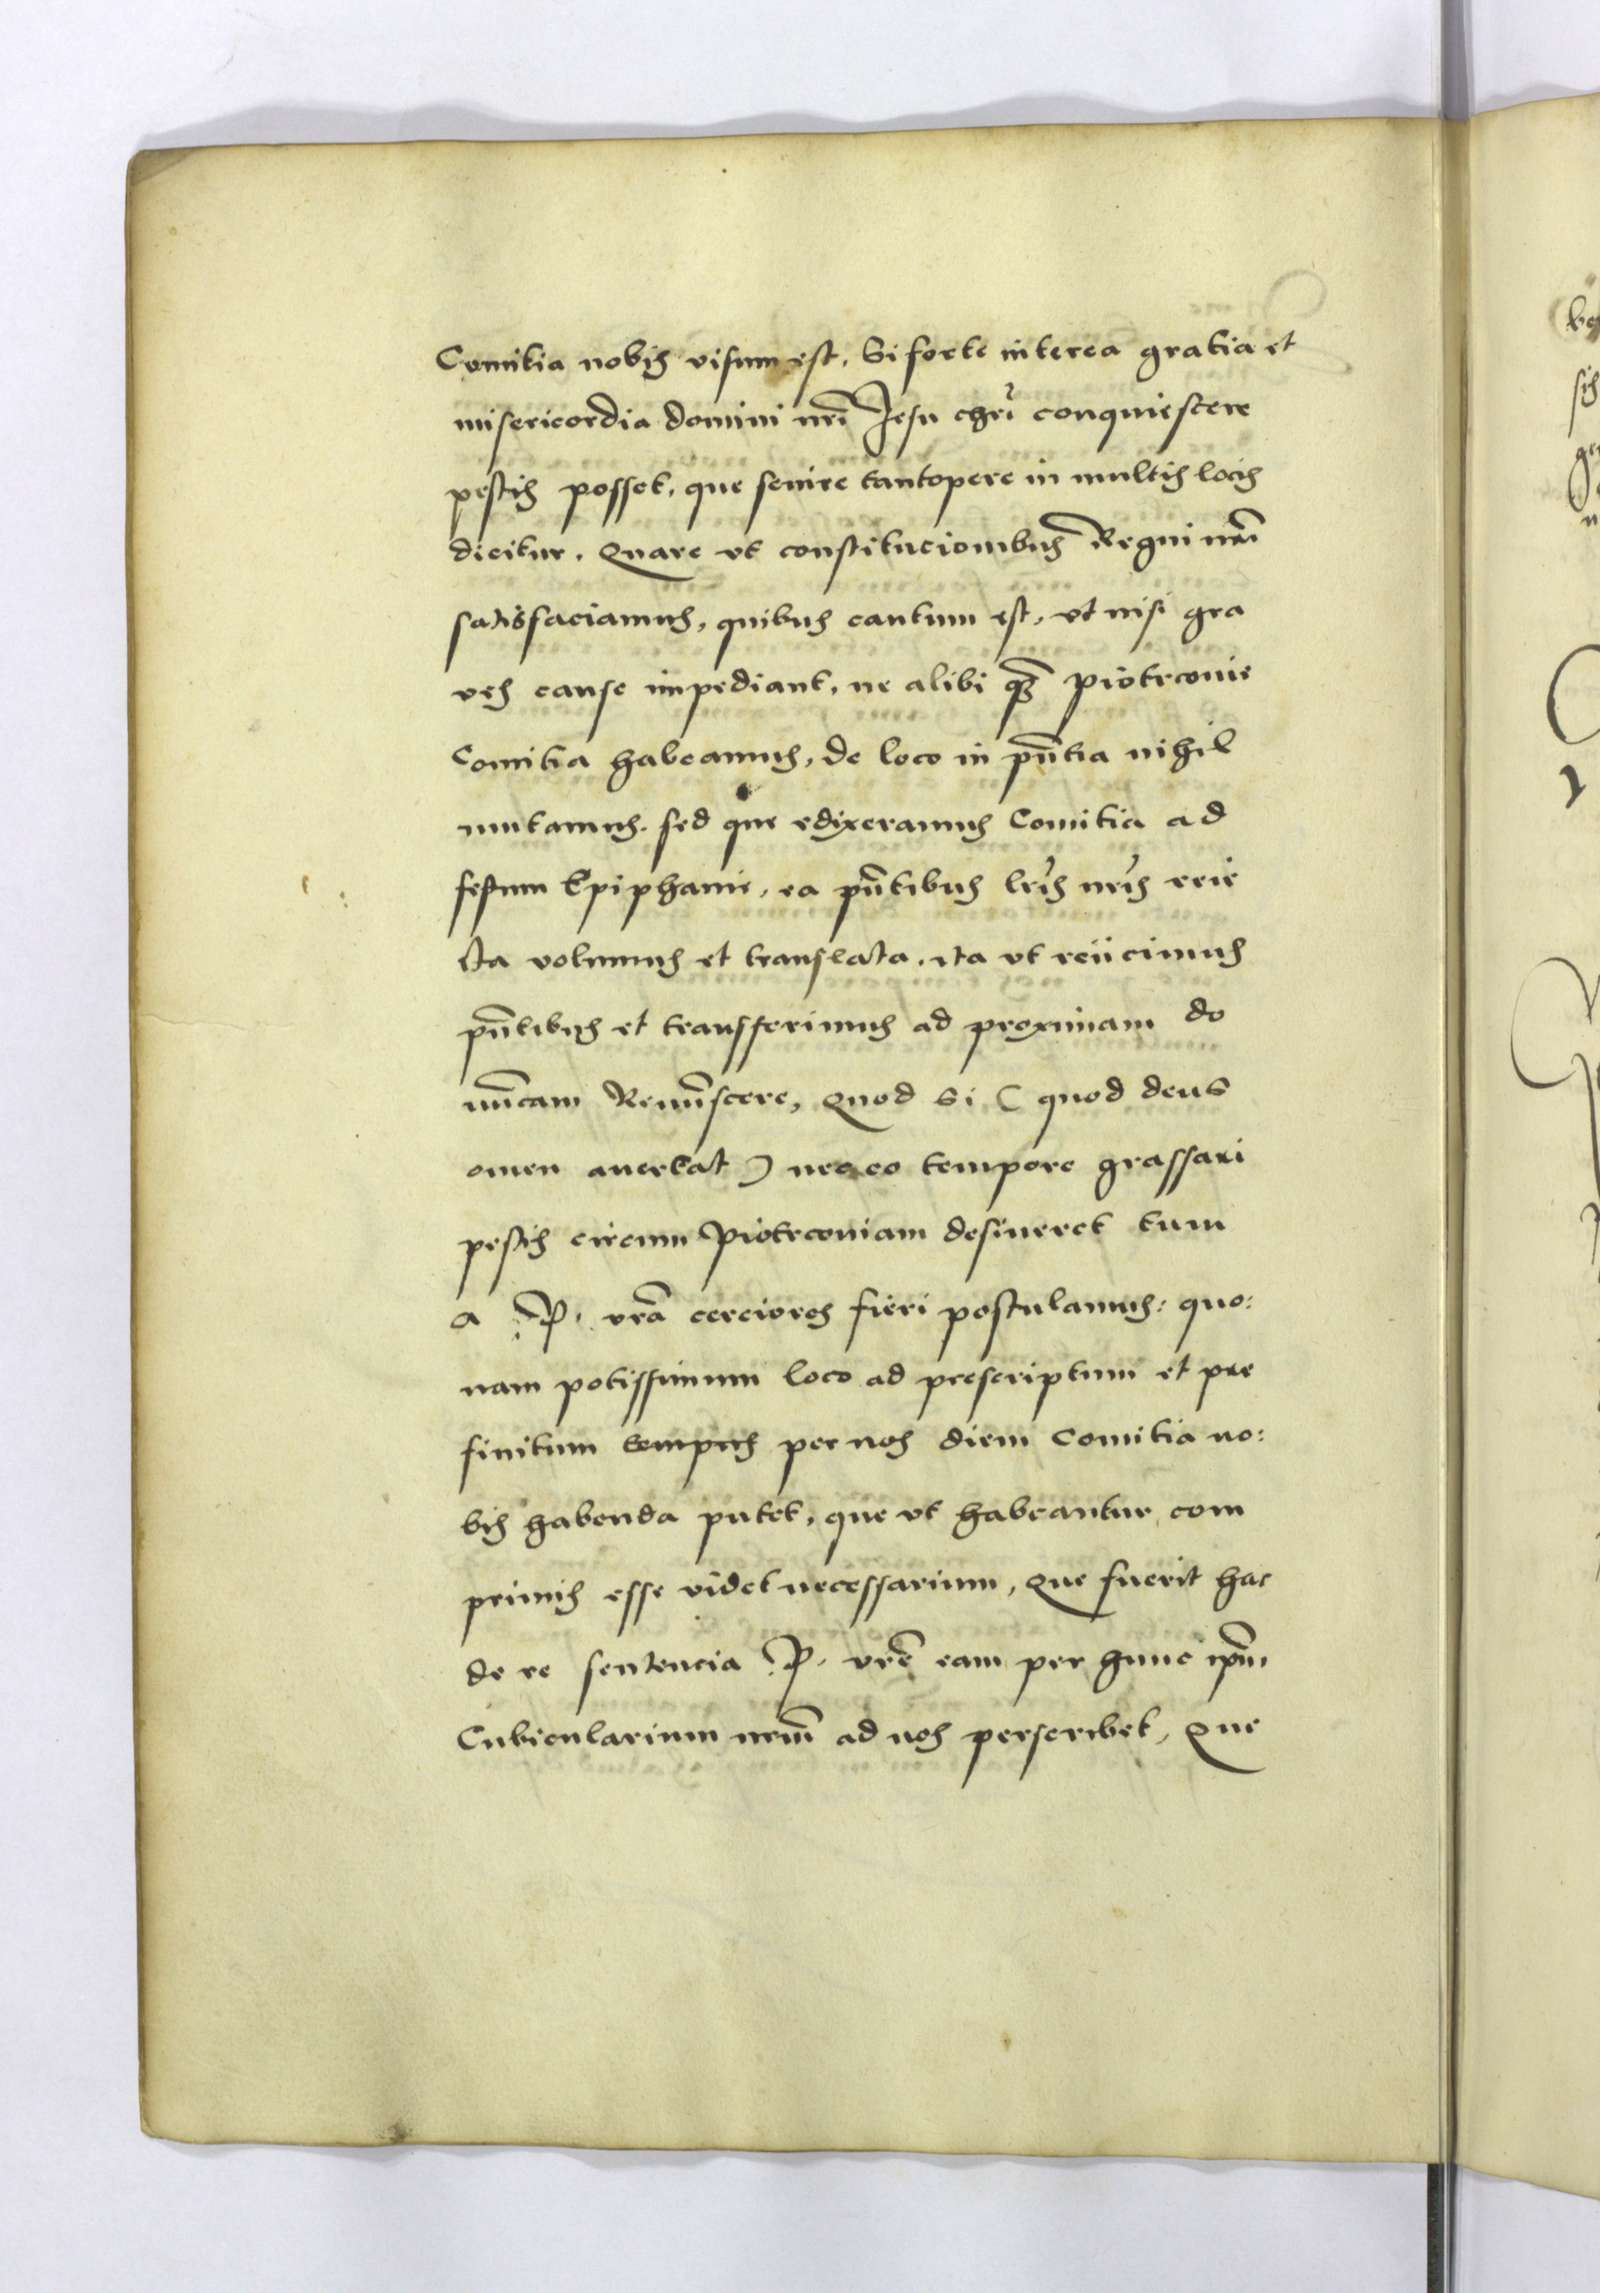 Comitia nobis visum est. Si forte interea gratia et
misericordia domini nrī Jesu chrī conquiescere
pestis posset, que seuire tantopere in multis locis
dicitur. Quare vt constitucionibus Regni nrī
satisfaciamus, quibus cautum est, vt nisi gra
ves cause impediant, ne alibi q̄ Piotrcovie
Comitia habeamus, de loco in pn̄tia nihil
mutamus. sed que edixeramus Comitia ad
festum Epiphanie, ea pn̄tibus lrīs nrīs reie
cta volumus et translata. ita vt reiicimus
pn̄tibus et transferimus ad proximam do
mīcam Remīscere, Quod si ( quod deus
omen auertat ) nec eo tempore grassari
pestis circum Piotrcoviam desineret tum
a P. vrā cerciores fieri postulamus: quo:
nam potissimum loco ad prescriptum et pre
finitum per nos diem Comitia no:
bis habenda putet, que vt habeantur com
primis esse videt necessarium, Que fuerit hac
de re sentencia P. vrē eam per hunc ip̄m
Cubicularium nrm̄ ad nos perscribet, Que